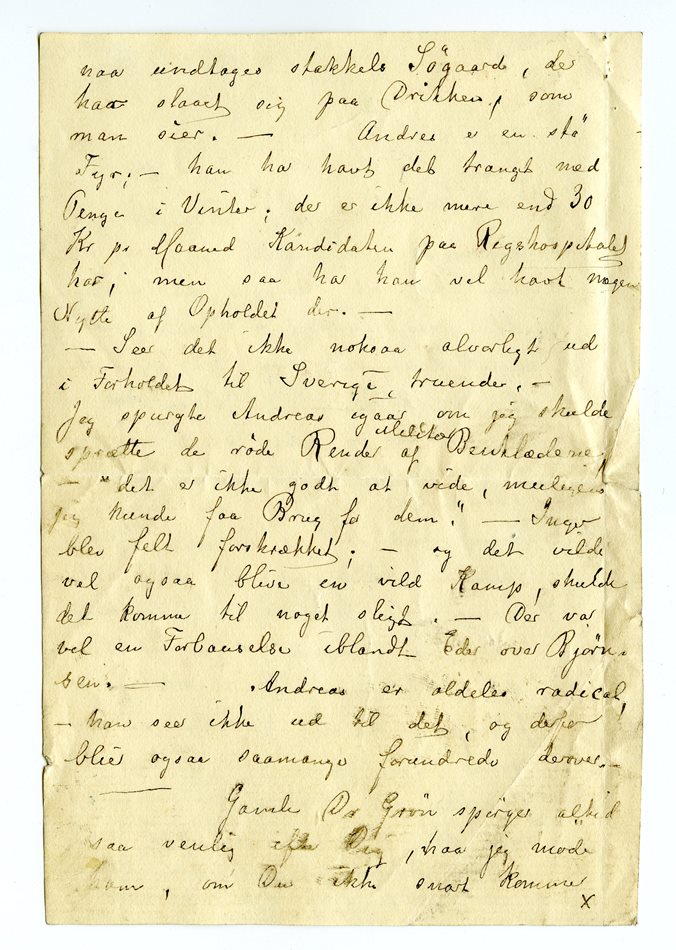 naa undtages stakkels Sögaard, der
har slaaet sig paa Drikken, som
man sier. — Andreas er en stö
Fyr; — han har havt det trangt med
Penge i Vinter; der er ikke mere end 30
Kr pr Maaned Kandidaten paa Rigshospitalet
har; men saa har han vel havt nogen
Nytte af Opholdet der. —
— Seer det ikke noksaa alvorligt ud
i Forholdet til Sverige, truende. —
Jeg spurgte Andreas igaar om jeg skulde
sprætte de röde Render af Militær Benklæderne,
— "det er ikke godt at vide, muligens
jeg kunde faa Brug for dem." — Inger
blev felt forskrækket; — og det vilde
vel ogsaa blive en vild Kamp, skulde
det komme til noget sligt. — Der var
vel en Forbauselse iblandt Eder over Bjørn-
sen. — Andreas er aldeles radical,
— han seer ikke ud til det, og derfor
blier ogsaa saamange forundrede derover. —
Gamle Dr Grön spörger altid
saa venlig efter Dig, naar jeg möder
ham, om Du ikke snart kommer
x